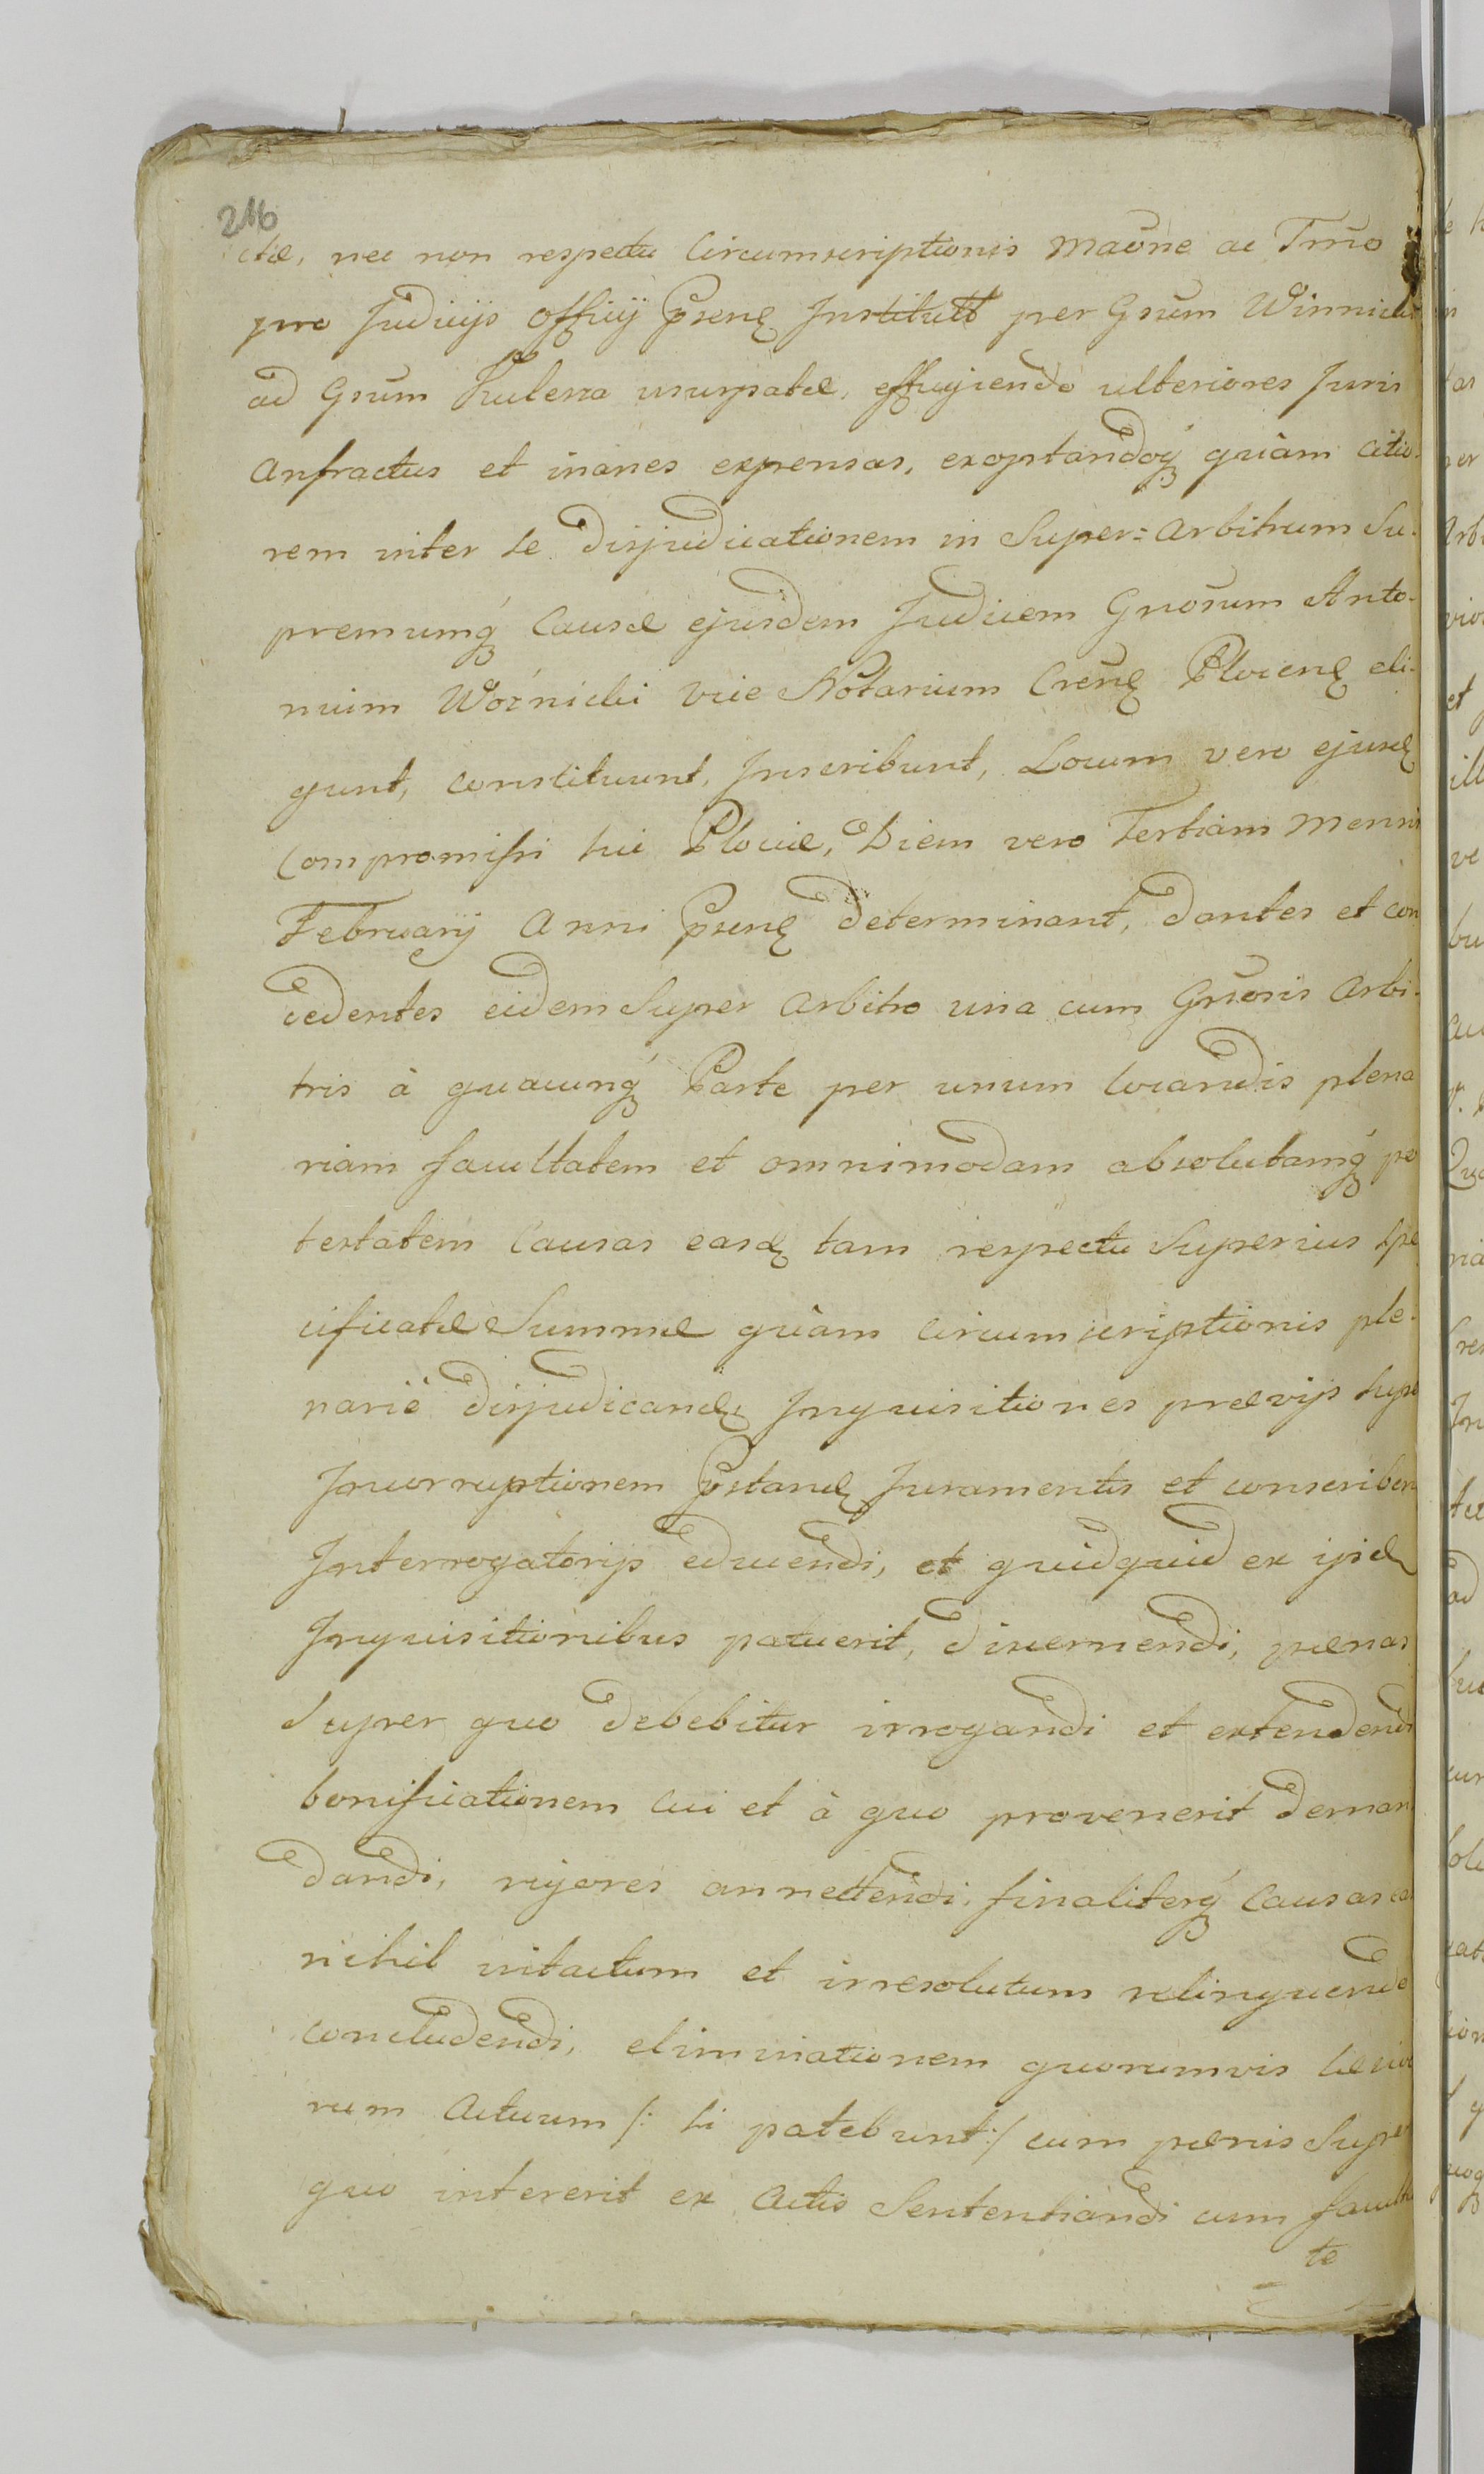 216
ctæ, nec non respectu Circumscriptionis Maõne ac Tm̃o
pro Judicijs Officij Pr̃senꝭ Institutt per Gsum Winnicki
ad Gsum Kulesza usurpatæ, effugiendo ulteriores Juris
Anfractus et inanes expensas, exoptandoq́ꝫ quàm citio-
rem inter se disjudicationem in Super=Arbitrum Su-
premumq́ꝫ Causæ ejusdem Judicem Gnosum Anto-
nium Woźnicki Vice Notarium Crenꝭ Plocenꝭ eli-
gunt, constituunt, Inscribunt, Locum vero ejusdꝭ
Compromissi hic Plociæ, Diem vero Tertiam Mensis
February Anni Pr̃senꝭ determinant, dantes et con
cedentes eidem Super Arbitro una cum Gnosis Arbi-
tris à quacunq́ꝫ Parte per unum locandis plena
riam facultatem et omnimodam absolutamq́ꝫ po
testatem Causas easdꝭ tam respectu Superius spe
cificatæ Summæ quàm circumscriptionis ple-
nariè disjudicandꝭ, Inquisitiones prævijs super
Incorruptionem pr̃standꝭ Juramentis et conscriben
Interrogatorijs educendi, et quidquid ex ijsdꝭ
Inquisitionibus patuerit, discernendi, pænas
Super quo debebitur irrogandi et extendendi
bonificationem cui et à quo provenerit deman
dandi, rigores annectendi, finaliterq́ꝫ Causas eas
nihil intactum et irresolutum relinquendo
concludendi, eliminationem quorumvis læsivo
rum Actuum /: si patebunt :/ cum pænis Super
quo intererit ex Actis Sententiandi cum faculta
te